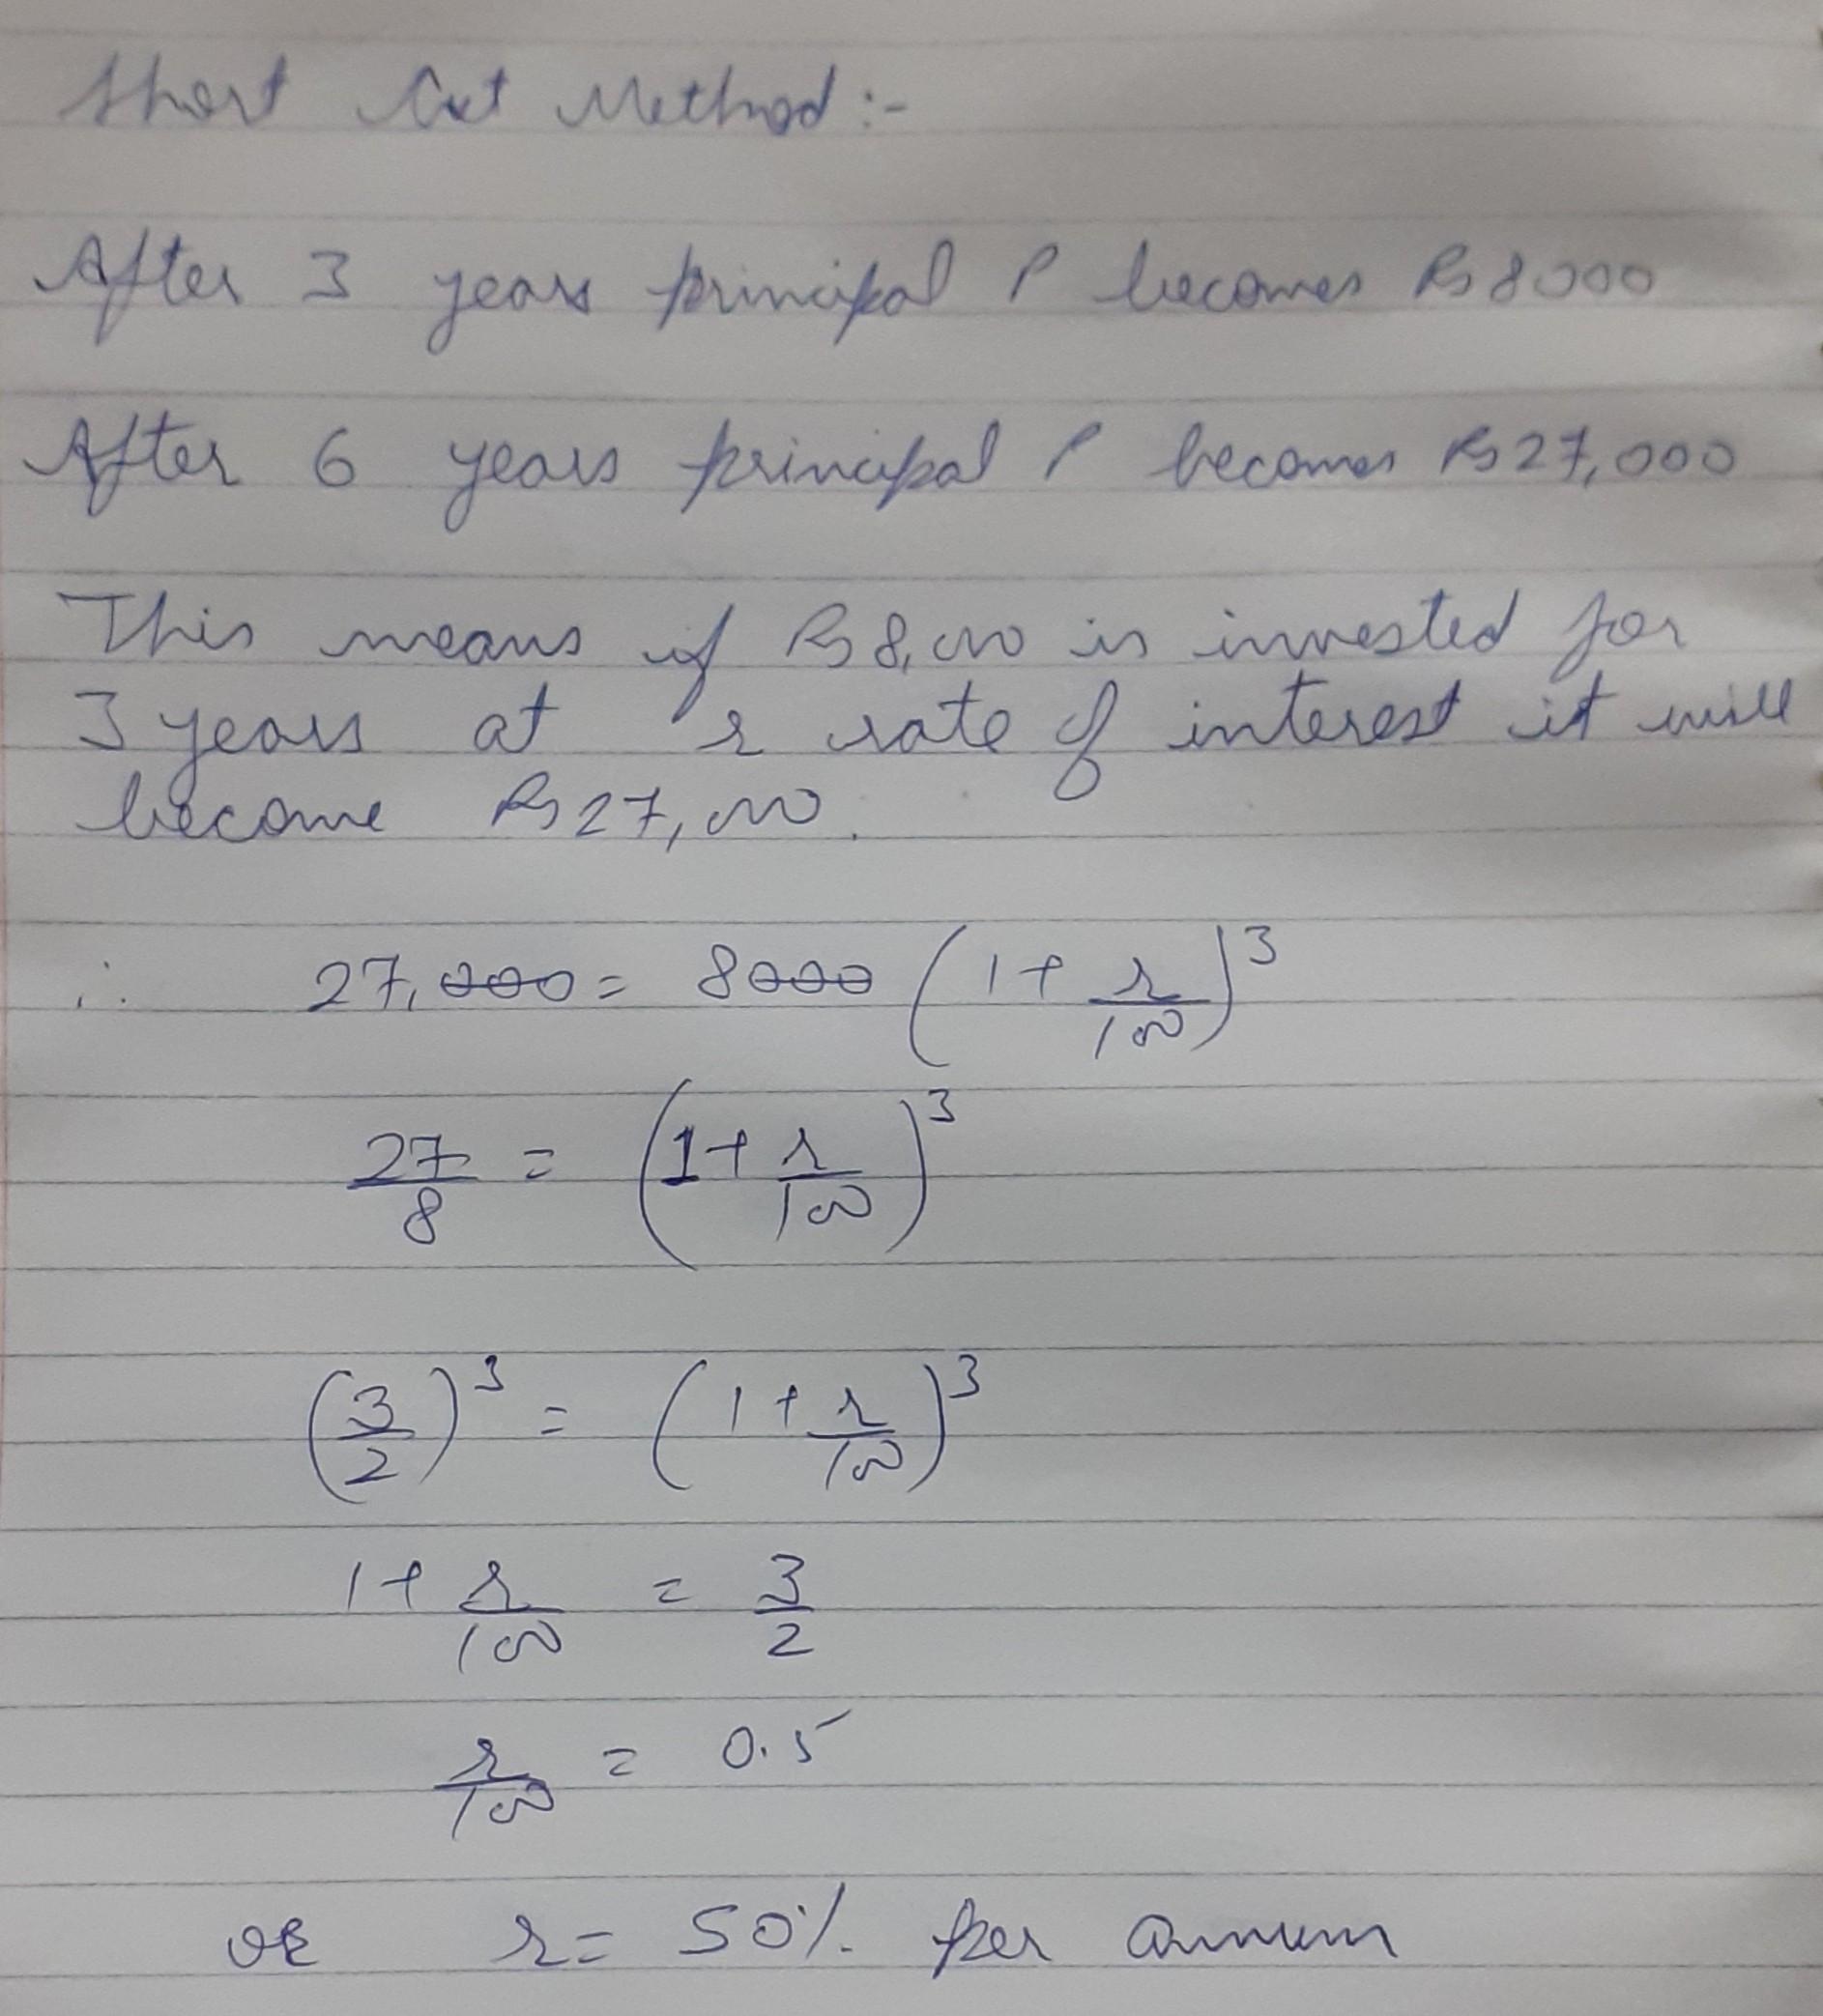 Short Cut Method :-
After 3 years principal P becomes Rs 8000
After 6 years principal P becomes Rs 27,000
This means if Rs 8,000 is invested for
3 years at r rate of interest it will
become Rs 27,000.
∴ 27,000 = 8000 (1 + r/100)³
27/8 = (1 + r/100)³
(3/2)³ = (1 + r/100)³
1 + r/100 = 3/2
r/100 = 0.5
or r = 50% per annum